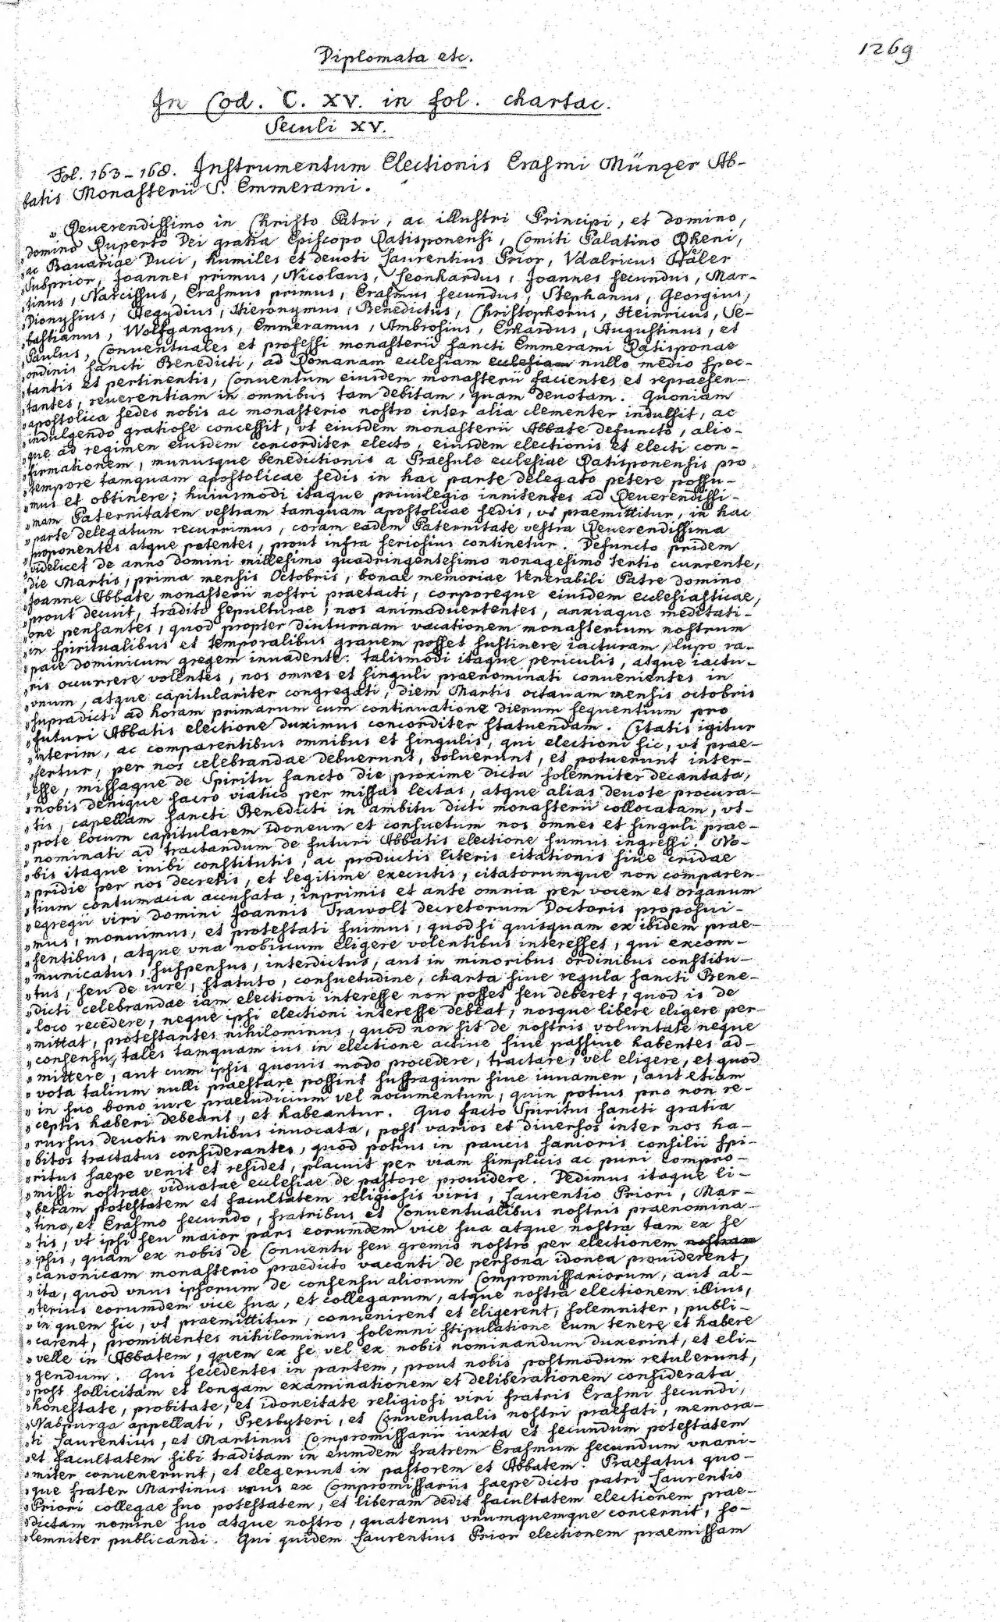 1269
Diplomata etc.
In Cod. C. XV. in fol. chartac.
Seculi XV.
Fol. 163-168. Instrumentum Electionis Erasmi Münzer Ab-
batis Monasterii S. Emmerami.
„Reuerendissimo in Christo Patri, ac illustri Principi, et domino,
„domino Ruperto Dei gratia Episcopo Ratisponensi, Comiti Palatino Rheni,
„ac Bauariae Duci, humiles et deuoti Laurentius Prior, Vdalricus
„Subprior, Joannes primus, Nicolaus, Leonhardus, Joannes secundus, Mar-
„tinus, Narcissus, Erasmus primus, Erasmus secundus, Stephanus, Georgius,
„Dionysius, Aegydius, Hieronymus, Benedictus, Christophorus, Heinricus, Se-
„bastianus, Wolfgangus, Emmeramus, Ambrosius, Erhardus, Augustinus, et
„Paulus, Conuentuales et professi monasterii sancti Emmerami Ratisponae
„ordinis sancti Benedicti, ad Romanam ecclesiam ecclesiam nullo medio spec-
„tantis et pertinentis, Conuentum eiusdem monasterii facientes et repraesen-
„tantes, reuerentiam in omnibus tam debitam, quam deuotam. Quoniam
„apostolica sedes nobis ac monasterio nostro inter alia clementer indulsit, ac
„indulgendo gratiose concessit, vt eiusdem monasterii Abbate defuncto, alio-
„que ad regimen eiusdem concorditer electo, eiusdem electionis et electi con-
„firmationem, munusque benedictionis a Praesule ecclesiae Ratisponensis pro
„tempore tamquam apostolicae sedis in hac parte delegato petere possu-
„mus et obtinere; huiusmodi itaque priuilegio innitentes ad Reuerendissi-
„mam Paternitatem vestram tamquam apostolicae sedis, vt praemittitur, in hac
„parte delegatum recurrimus, coram eadem Paternitate vestra Reuerendissima
„proponentes atque petentes, prout infra seriosius continetur. Defuncto pridem
„videlicet de anno domini millesimo quadringentesimo nonagesimo tertio currente,
„die Martis, prima mensis Octobris, bonae memoriae Venerabili Patre domino
„Joanne Abbate monasterii nostri praetacti, corporeque eiusdem ecclesiasticae,
„prout decuit, tradito sepulturae, nos animaduertentes, anxiaque meditati-
„one pensantes, quod propter diuturnam vacationem monasterium nostrum
„in spiritualibus et temporalibus grauem posset sustinere iacturam, lupo ra-
„pace dominicum gregem inuadente. Talismodi itaque periculis, atque iactu-
„ris occurrere volentes, nos omnes et singuli praenominati conuenientes in
„vnum, atque capitulariter congregati, diem Martis octauam mensis octobris
„supradicti ad horam primarum cum continuatione dierum sequentium pro
„futuri Abbatis electione duximus concorditer statuendam. Citatis igitur
„interim, ac comparentibus omnibus et singulis, qui electioni sic, vt prae-
„fertur, per nos celebrandae debuerunt, voluerunt, et potuerunt inter-
„esse, missaque de Spiritu sancto die proxime dicta solemniter decantata,
„nobis denique sacro viatico per missas lectas, atque alias deuote procura-
„tis, capellam sancti Benedicti in ambitu dicti monasterii collocatam, vt-
„pote locum capitularem idoneum et consuetum nos omnes et singuli prae-
„nominati ad tractandum de futuri Abbatis electione sumus ingressi. No-
„bis itaque inibi constitutis, ac productis literis citationis siue cridae
„pridie per nos decretis, et legitime executis, citatorumque non comparen-
„tium contumacia accusata, inprimis et ante omnia per vocem et organum
„egregii viri domini Joannis Trawolt decretorum Doctoris proposui-
„mus, monuimus, et protestati fuimus, quod si quisquam ex ibidem prae-
„sentibus, atque vna nobiscum eligere volentibus interesset, qui excom-
„municatus, suspensus, interdictus, aut in minoribus ordinibus constitu-
„tus, seu de iure, statuto, consuetudine, charta siue regula sancti Bene-
„dicti celebrandae iam electioni interesse non posset seu deberet, quod is de
„loco recedere, neque ipsi electioni interesse debeat, nosque libere eligere per-
„mittat, protestantes nihilominus, quod non sit de nostris voluntate neque
„consensu, tales tamquam ius in electione actiue siue passiue habentes ad-
„mittere, aut cum ipsis quouis modo procedere, tractare, vel eligere, et quod
„vota talium nulli praestare possint suffragium siue iuuamen, aut etiam
„in suo bono iure praeiudicium vel nocumentum, quin potius pro non re-
„ceptis haberi debeant, et habeantur. Quo facto Spiritus sancti gratia
„rursus deuotis mentibus inuocata, post varios et diuersos inter nos ha-
„bitos tractatus considerantes, quod potius in paucis sanioris consilii spi-
„ritus saepe venit et resides, placuit per viam simplicis ac puri compro-
„missi nostrae viduatae ecclesiae de pastore prouidere. Dedimus itaque li-
„beram potestatem et facultatem religiosis viris, Laurentio Priori, Mar-
„tino, et Erasmo secundo, fratribus et Conuentualibus nostris praenomina-
„tis, vt ipsi seu maior pars eorumdem vice sua atque nostra tam ex se
„ipsis, quam ex nobis de Conuentu seu gremio nostro per electionem nostram
„canonicam monasterio praedicto vacanti de persona idonea prouiderent,
„ita, quod vnus ipsorum de consensu aliorum Compromissariorum, aut al-
„terius eorumdem vice sua, et collegarum, atque nostra electionem illius,
„in quem sic, vt praemittitur, conuenirent et eligerent, solemniter, publi-
„carent, promittentes nihilominus solemni stipulatione eum tenere et habere
„velle in Abbatem, quem ex se vel ex nobis nominandum duxerint, et eli-
„gendum. Qui secedentes in partem, prout nobis postmodum retulerunt,
„post sollicitam et longam examinationem et deliberationem considerata
„honestate, probitate, et idoneitate religiosi viri fratris Erasmi secundi,
„Nabpurga appellati, Presbyteri, et Conuentualis nostri praefati, memora-
„ti Laurentius, et Martinus Compromissarii iuxta et secundum potestatem
„et facultatem sibi traditam in eumdem fratrem Erasmum secundum vnani-
„miter conuenerunt, et elegerunt in pastorem et Abbatem. Praefatus quo-
„que frater Martinus vnus ex Compromissariis saepe dicto patri Laurentio
„Priori collegae suo potestatem, et liberam dedit facultatem electionem prae-
„dictam nomine suo atque nostro, quatenus vnumquemque concernit, so-
„lemniter publicandi. Qui quidem Laurentius Prior electionem praemissam